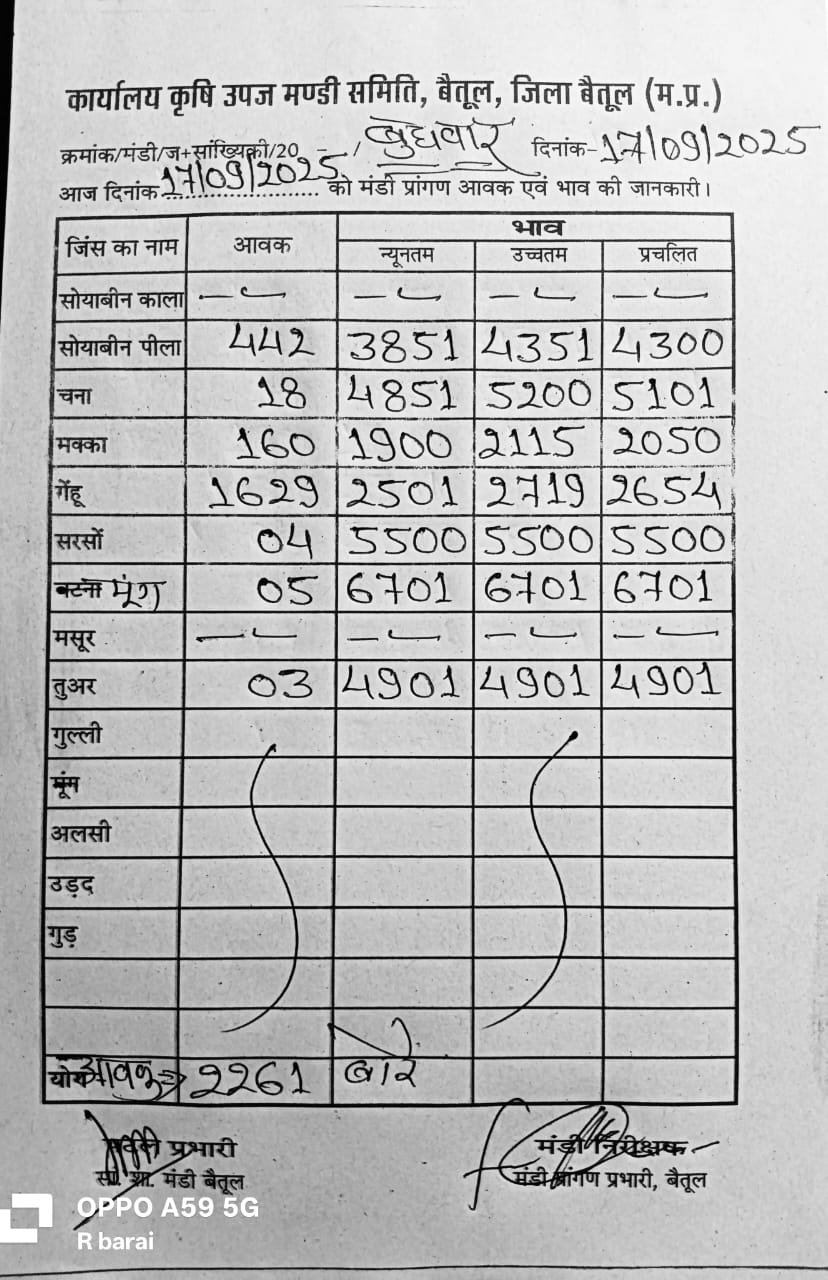 कार्यालय कृषि उपज मण्डी समिति, बैतूल, जिला बैतूल (म.प्र.)
क्रमांक/मंडी/ज+सांख्यिकी/20 - / बुधवार दिनांक-17/09/2025
आज दिनांक 17/09/2025 को मंडी प्रांगण आवक एवं भाव की जानकारी।
जिंस का नाम आवक भाव
न्यूनतम उच्चतम प्रचलित
सोयाबीन काला — — — —
सोयाबीन पीला 442 3851 4351 4300
चना 18 4851 5200 5101
मक्का 160 1900 2115 2050
गेंहू 1629 2501 2719 2654
सरसों 04 5500 5500 5500
बटना मूंग 05 6701 6701 6701
मसूर — — — —
तुअर 03 4901 4901 4901
गुल्ली
मूंग
अलसी
उड़द
गुड़
योग आवक 2261 बोरे
प्रभारी मंडी निरीक्षक
सां. शा. मंडी बैतूल मंडी प्रांगण प्रभारी, बैतूल
OPPO A59 5G
R barai